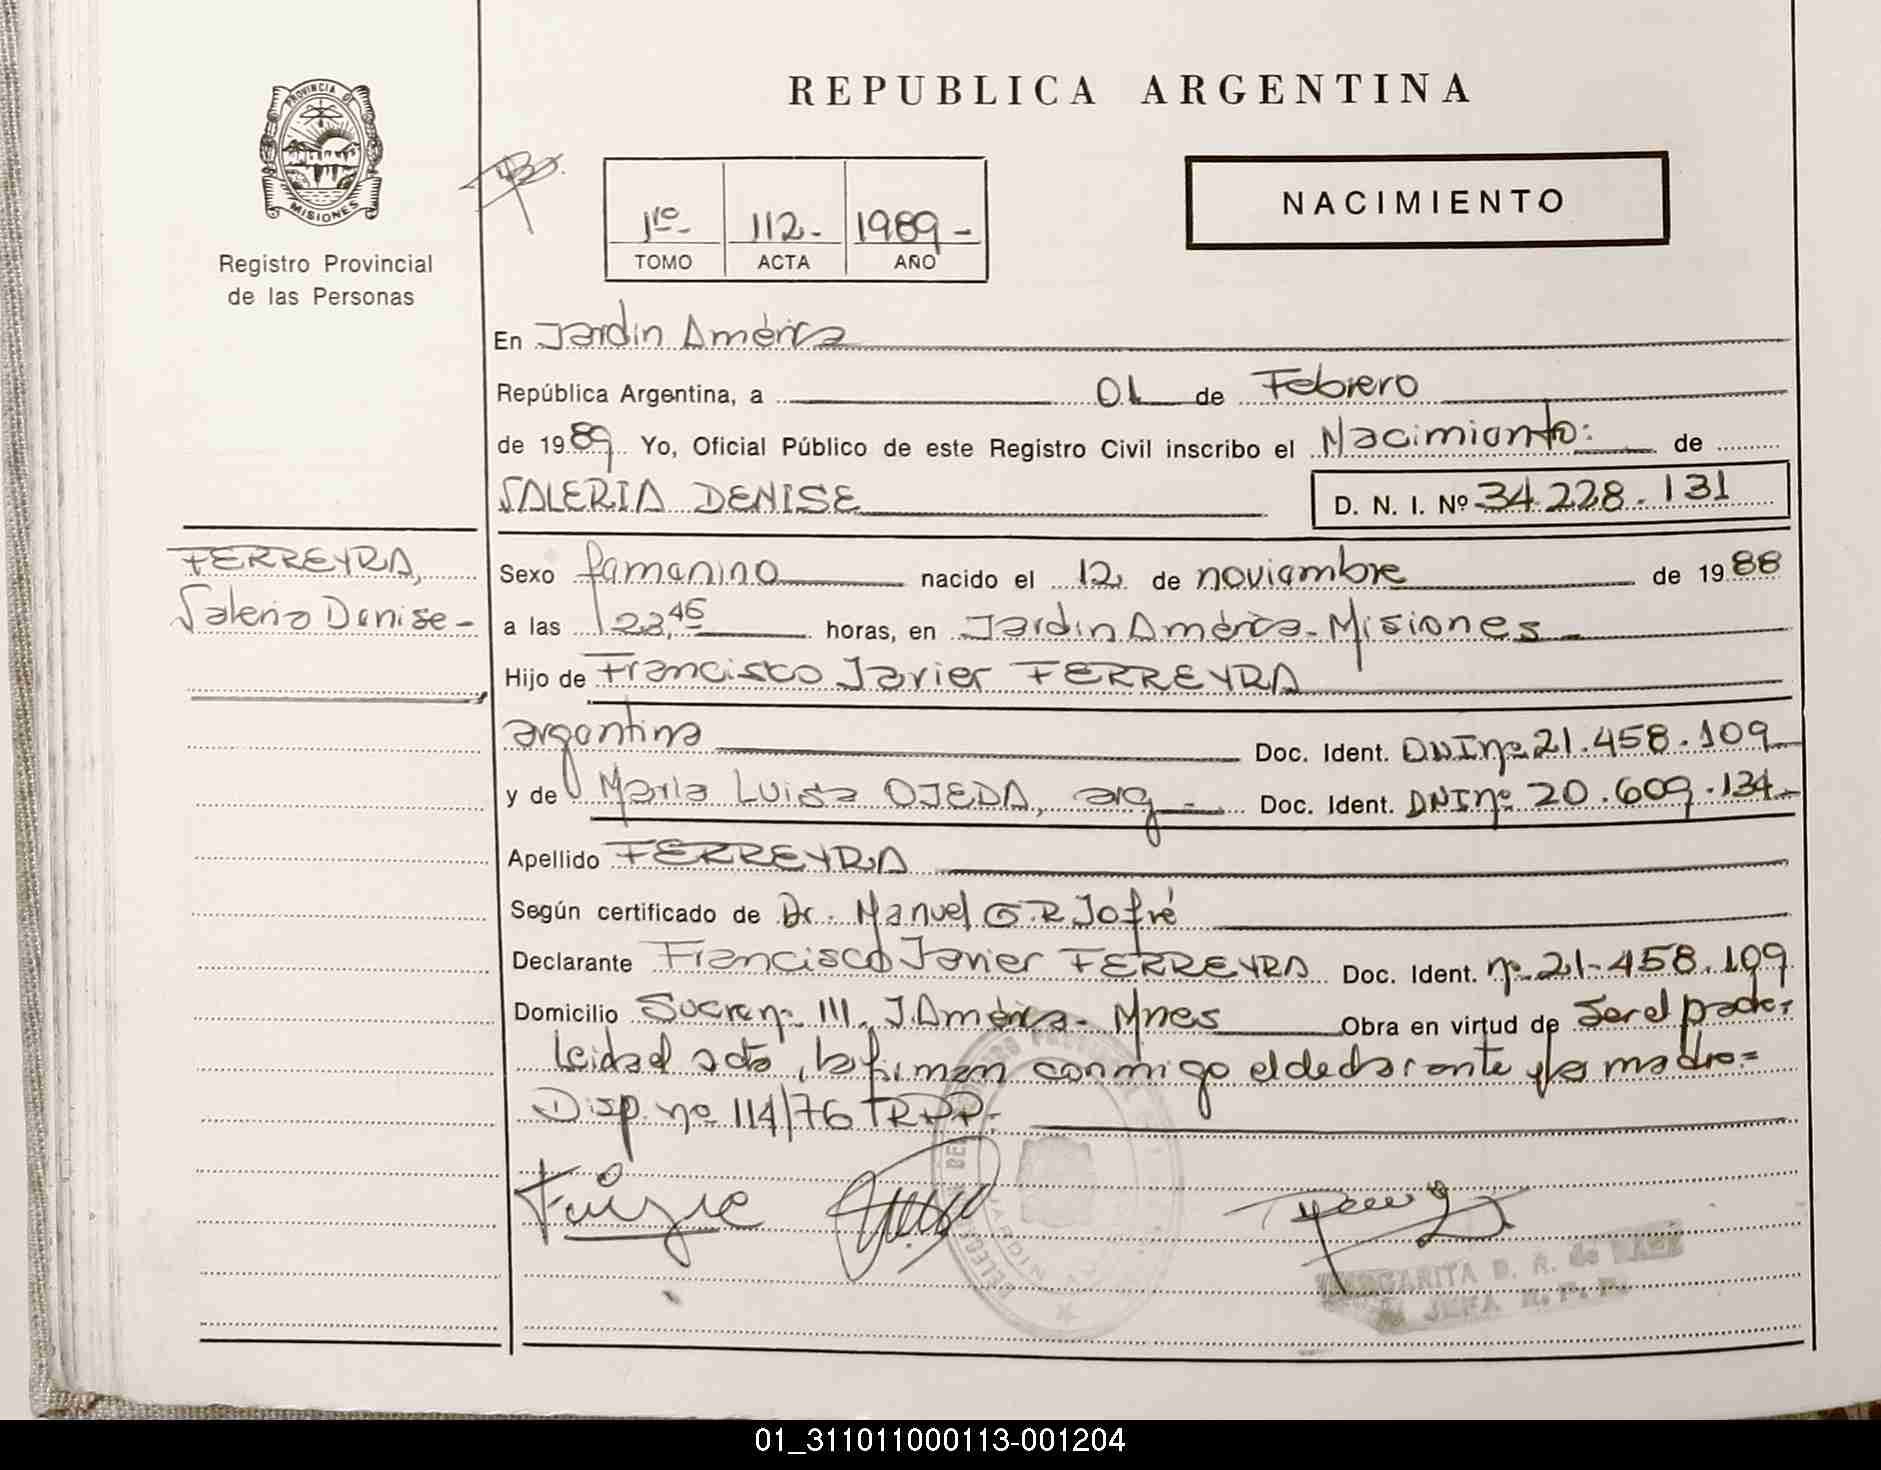 PROVINCIA DE
MISIONES
Registro Provincial
de las Personas
REPUBLICA ARGENTINA
1ro- 112- 1989-
TOMO ACTA AÑO
NACIMIENTO
En Jardín América
República Argentina, a 01 de Febrero
de 1989 Yo, Oficial Público de este Registro Civil inscribo el Nacimiento: de
VALERIA DENISE D. N. I. Nº 34.228.131
FERREYRA,
Valeria Denise-
Sexo femenino nacido el 12 de noviembre de 1988
a las 23,45 horas, en Jardín América-Misiones
Hijo de Francisco Javier FERREYRA
argentina Doc. Ident. DNI nº 21.458.109
y de María Luisa OJEDA, arg- Doc. Ident. DNI nº 20.609.134-
Apellido FERREYRA
Según certificado de Dr. Manuel G.R. Jofré
Declarante Francisco Javier FERREYRA Doc. Ident. nº 21-458.109
Domicilio Sucre nº 111, J. América- Mnes Obra en virtud de ser el padre;
leída el acta, la firman conmigo el declarante y la madre=
Disp. nº 114/76 RPP.
MARGARITA B. R. de
JEFA R. P. P.
01_311011000113-001204